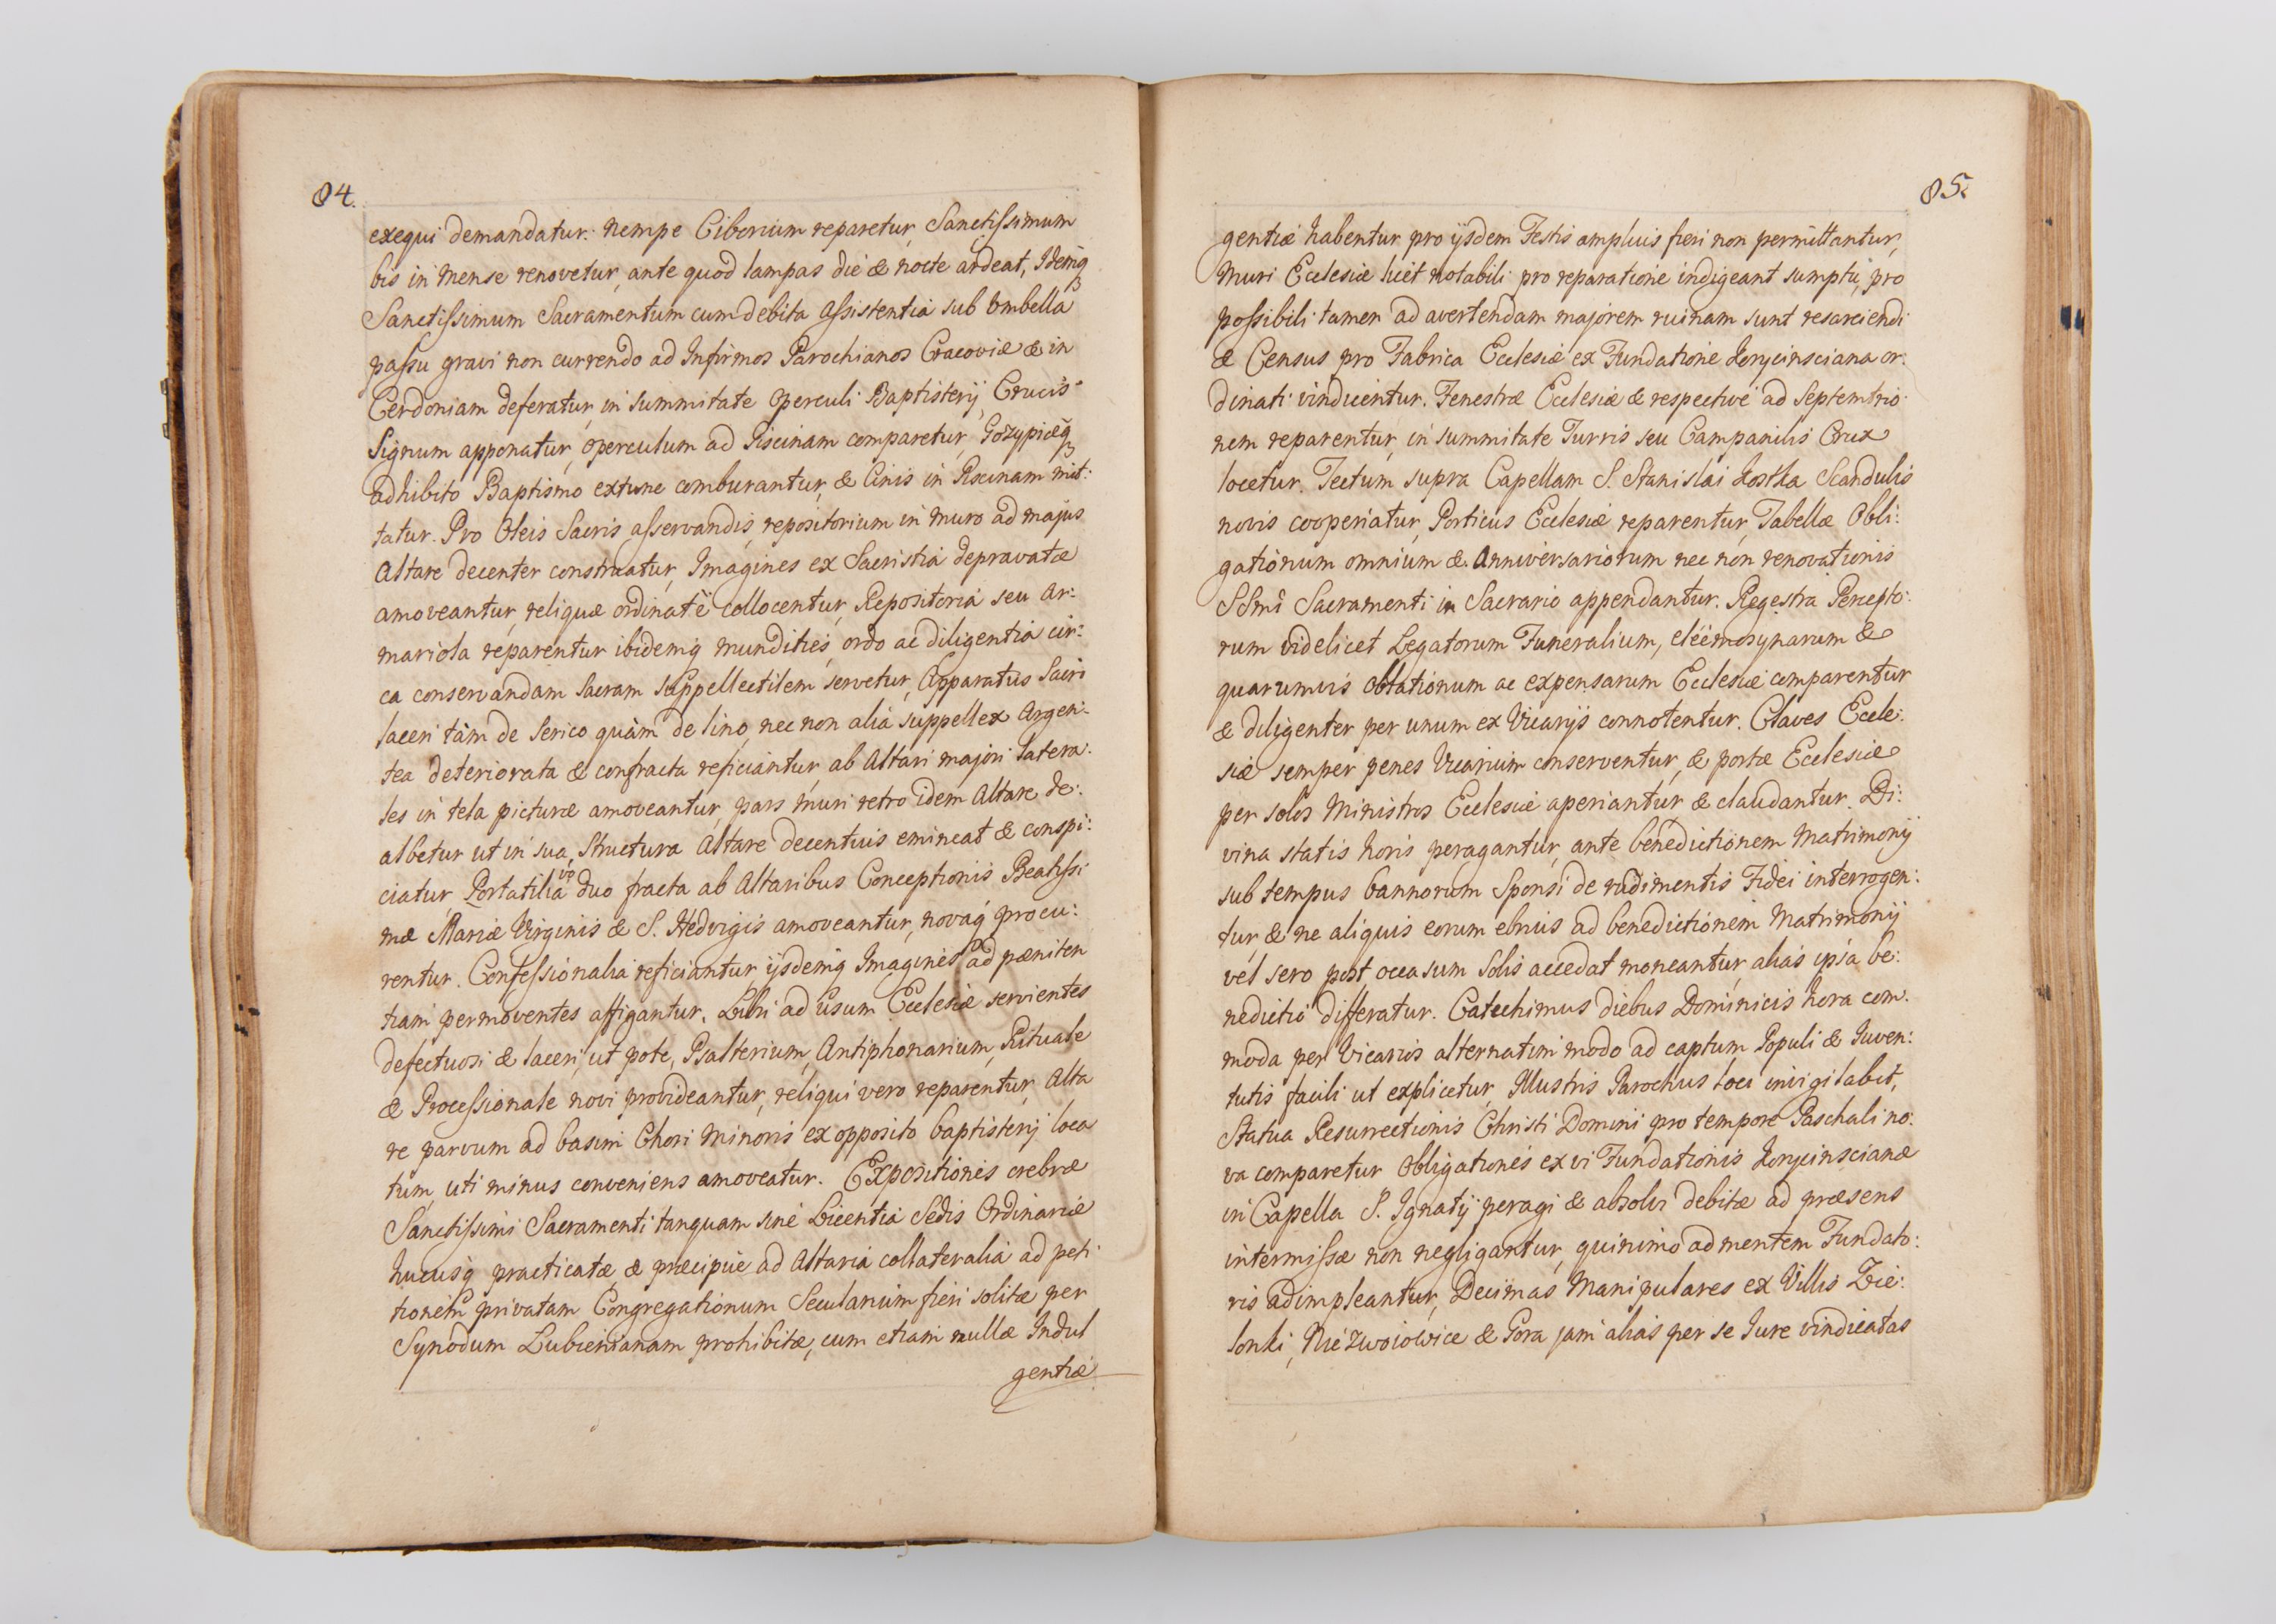 84.
exequi demandatur: nempe Ciborium reparetur, Sanctissimum
bis in Mense renovetur, ante quod lampas die & nocte ardeat, Idemq́ꝫ
Sanctissimum Sacramentum cum debita Assistentia sub Umbella
passu gravi non currendo ad Infirmos Parochianos Cracoviæ & in
Cerdoniam deferatur, in summitate Operculi Baptisterij Crucis
Signum apponatur, Operculum ad Piscinam comparetur, Gozypiæq́ꝫ
adhibito Baptismo extunc comburantur, & Cinis in Piscinam mit:
tatur. Pro Oleis Sacris asservandis, repositorium in muro ad majus
Altare decenter construatur, Imagines ex Sacristia depravatæ
amoveantur, reliquæ ordinatè collocentur, Repositoria seu Ar:
mariola reparentur ibidemq́ mundities, ordo ac diligentia cir:
ca conservandam Sacram Suppellectilem servetur, Apparatus Sacri
laceri tàm de Serico quàm de lino, nec non alia suppellex Argen:
tea deteriorata & confracta reficiantur, ab Altari majori latera:
les in tela picturæ amoveantur, pars muri retro idem Altare de:
albetur ut in sua Structura Altare decentius emineat & conspi:
ciatur, Portatilia vo duo fracta ab Altaribus Conceptionis Beatissi
mæ Mariæ Virginis & S. Hedvigis amoveantur, novaq́ procu:
rentur. Confessionalia reficiantur, ijsdemq́ Imagines ad pæniten
tiam permoventes affigantur. Libri ad usum Ecclesiæ servientes
defectuosi & laceri, ut pote, Psalterium, Antiphonarium, Rituale
& Processionale novi provideantur, reliqui vero reparentur, Alta
re parvum ad basim Chori Minoris ex opposito baptisterij loca
tum, uti minus conveniens amoveatur. Expositiones crebræ
Sanctissimi Sacramenti tanquam sine Licentia Sedis Ordinariæ
hucusq́ practicatæ & præcipue ad Altaria collateralia ad peti
tionem privatam Congregationum Secularium fieri solitæ per
Synodum Lubienianam prohibitæ, cum etiam nullæ Indul
gentiæ
85.
gentiæ habentur pro ijsdem Festis amplius fieri non permittantur,
Muri Ecclesiæ licèt notabili pro reparatione indigeant sumptu, pro
possibili tamen ad avertendam majorem ruinam sunt resarciendi
& Census pro Fabrica Ecclesiæ ex Fundatione Koryciнsciana or:
dinati vindicentur. Fenestræ Ecclesiæ & respectivè ad Septemtrio:
nem reparentur, in summitate Turris seu Campanilis Crux
locetur. Tectum supra Capellam S. Stanislai Kostka Scandulis
novis cooperiatur, Porticus Ecclesiæ reparentur, Tabellæ Obli:
gationum omnium & Anniversariorum nec non renovationis
SSmi Sacramenti in Sacrario appendantur. Regestra Percepto:
rum videlicet Legatorum Funeralium, eléémosynarum &
quarumvis Oblationum ac expensarum Ecclesiæ comparentur
& diligenter per unum ex Vicarijs connotentur. Claves Eccle:
siæ semper penes Vicarium conserventur, & portæ Ecclesiæ
per solos Ministros Ecclesiæ aperiantur & claudantur. Di:
vina statis horis peragantur, ante benedictionem Matrimonij
sub tempus bannorum Sponsi de rudimentis Fidei interrogen:
tur & ne aliquis eorum ebrius ad benedictionem Matrimonij
vel sero post occasum Solis accedat moneantur, aliàs ipsa be:
nedictio differatur. Catechimus diebus Dominicis hora com:
moda per Vicarios alternatim modo ad captum Populi & Iuven:
tutis facili ut explicetur, Illustris Parochus loci invigilabit,
Statua Resurrectionis Christi Domini pro tempore Paschali no:
va comparetur Obligationes ex vi Fundationis Korycinscianæ
in Capella S. Ignatij peragi & absolvi debitæ ad præsens
intermissæ non negligantur, quinimo ad mentem Fundato:
ris adimpleantur, Decimas Manipulares ex Villis Zie:
lonki, Niezwoiowice & Gora jam aliàs per se Iure vindicatas